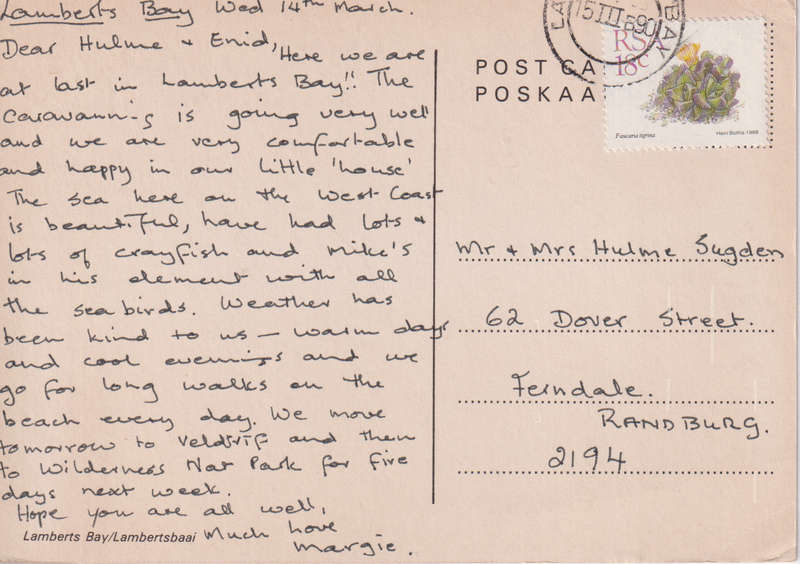 Lamberts Bay Wed 14th March.
Dear Hulme & Enid, Here we are
at last in Lamberts Bay!! The
caravanning is going very well
and we are very comfortable
and happy in our little 'house'
The sea here on the West Coast
is beautiful, have had lots &
lots of crayfish and Mike's
in his element with all
the sea birds. Weather has
been kind to us — warm days
and cool evenings and we
go for long walks on the
beach every day. We move
tomorrow to Velddrif and then
to Wilderness Nat Park for five
days next week.
Hope you are all well,
Much love
Margie.
Lamberts Bay/Lambertsbaai
POST CA
POSKAA
BAY
RSA
18c
Faucaria tigrina
Hein Botha 1988
Mr & Mrs Hulme Sugden
62 Dover Street.
Ferndale.
RANDBURG.
2194